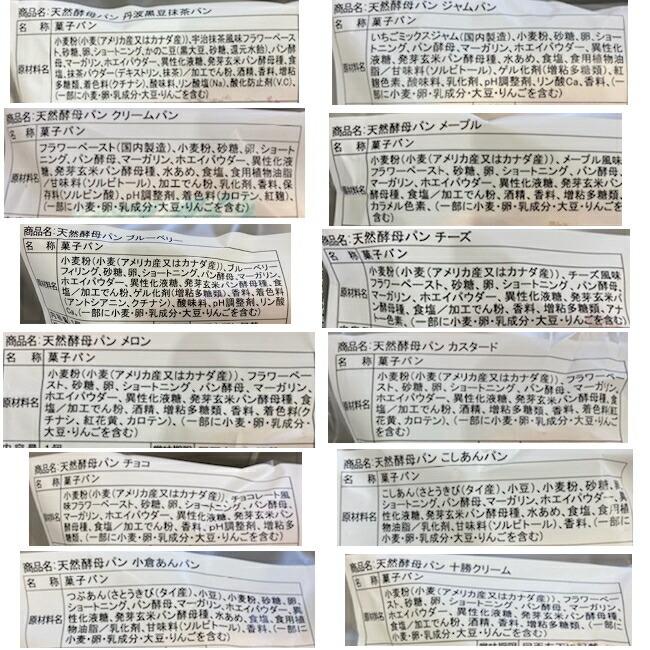 商品名:天然酵母パン 丹波黒豆抹茶パン
名 称 菓子パン
原材料名
小麦粉(小麦(アメリカ産又はカナダ産))、宇治抹茶風味フラワーペースト、砂糖、卵、ショートニング、かのこ豆(黒大豆、砂糖、還元水飴)、パン酵母、マーガリン、ホエイパウダー、異性化液糖、発芽玄米パン酵母種、食塩、抹茶パウダー(デキストリン、抹茶)/加工でん粉、酒精、香料、増粘多糖類、着色料(クチナシ)、酸味料、リン酸塩(Na)、酸化防止剤(V.C)、(一部に小麦・卵・乳成分・大豆・りんごを含む)
商品名:天然酵母パン ジャムパン
名 称 菓子パン
原材料名
いちごミックスジャム(国内製造)、小麦粉、砂糖、卵、ショートニング、パン酵母、マーガリン、ホエイパウダー、異性化液糖、発芽玄米パン酵母種、水あめ、食塩、食用植物油脂/甘味料(ソルビトール)、ゲル化剤(増粘多糖類)、紅麹色素、酸味料、乳化剤、pH調整剤、リン酸Ca、香料、(一部に小麦・卵・乳成分・大豆・りんごを含む)
商品名:天然酵母パン クリームパン
名 称 菓子パン
原材料名
フラワーペースト(国内製造)、小麦粉、砂糖、卵、ショートニング、パン酵母、マーガリン、ホエイパウダー、異性化液糖、発芽玄米パン酵母種、水あめ、食塩、食用植物油脂/甘味料(ソルビトール)、加工でん粉、乳化剤、香料、保存料(ソルビン酸)、pH調整剤、着色料(カロテン、紅麹)、(一部に小麦・卵・乳成分・大豆・りんごを含む)
商品名:天然酵母パン メープル
名 称 菓子パン
原材料名
小麦粉(小麦(アメリカ産又はカナダ産))、メープル風味フラワーペースト、砂糖、卵、ショートニング、パン酵母、マーガリン、ホエイパウダー、異性化液糖、発芽玄米パン酵母種、食塩/加工でん粉、酒精、香料、増粘多糖類、カラメル色素、(一部に小麦・卵・乳成分・大豆・りんごを含む)
商品名:天然酵母パン ブルーベリー
名 称 菓子パン
原材料名
小麦粉(小麦(アメリカ産又はカナダ産))、ブルーベリーフィリング、砂糖、卵、ショートニング、パン酵母、マーガリン、ホエイパウダー、異性化液糖、発芽玄米パン酵母種、食塩/加工でん粉、ゲル化剤(増粘多糖類)、香料、着色料(アントシアニン、クチナシ)、酸味料、pH調整剤、リン酸Ca、(一部に小麦・卵・乳成分・大豆・りんごを含む)
商品名:天然酵母パン チーズ
名 称 菓子パン
原材料名
小麦粉(小麦(アメリカ産又はカナダ産))、チーズ風味フラワーペースト、砂糖、卵、ショートニング、パン酵母、マーガリン、ホエイパウダー、異性化液糖、発芽玄米パン酵母種、食塩/加工でん粉、酒精、香料、増粘多糖類、アナトー色素、(一部に小麦・卵・乳成分・大豆・りんごを含む)
商品名:天然酵母パン メロン
名 称 菓子パン
原材料名
小麦粉(小麦(アメリカ産又はカナダ産))、フラワーペースト、砂糖、卵、ショートニング、パン酵母、マーガリン、ホエイパウダー、異性化液糖、発芽玄米パン酵母種、食塩/加工でん粉、酒精、増粘多糖類、香料、着色料(クチナシ、紅花黄、カロテン)、(一部に小麦・卵・乳成分・大豆・りんごを含む)
商品名:天然酵母パン カスタード
名 称 菓子パン
原材料名
小麦粉(小麦(アメリカ産又はカナダ産))、フラワーペースト、砂糖、卵、ショートニング、パン酵母、マーガリン、ホエイパウダー、異性化液糖、発芽玄米パン酵母種、食塩/加工でん粉、酒精、増粘多糖類、香料、着色料(紅花黄、カロテン)、(一部に小麦・卵・乳成分・大豆・りんごを含む)
商品名:天然酵母パン チョコ
名 称 菓子パン
原材料名
小麦粉(小麦(アメリカ産又はカナダ産))、チョコレート風味フラワーペースト、砂糖、卵、ショートニング、パン酵母、マーガリン、ホエイパウダー、異性化液糖、発芽玄米パン酵母種、食塩/加工でん粉、香料、pH調整剤、増粘多糖類、(一部に小麦・卵・乳成分・大豆・りんごを含む)
商品名:天然酵母パン こしあんパン
名 称 菓子パン
原材料名
こしあん(さとうきび(タイ産)、小豆)、小麦粉、砂糖、卵、ショートニング、パン酵母、マーガリン、ホエイパウダー、異性化液糖、発芽玄米パン酵母種、水あめ、食塩、食用植物油脂/乳化剤、甘味料(ソルビトール)、香料、(一部に小麦・卵・乳成分・大豆・りんごを含む)
商品名:天然酵母パン 小倉あんパン
名 称 菓子パン
原材料名
つぶあん(さとうきび(タイ産)、小豆)、小麦粉、砂糖、卵、ショートニング、パン酵母、マーガリン、ホエイパウダー、異性化液糖、発芽玄米パン酵母種、水あめ、食塩、食用植物油脂/乳化剤、甘味料(ソルビトール)、香料、(一部に小麦・卵・乳成分・大豆・りんごを含む)
商品名:天然酵母パン 十勝クリーム
名 称 菓子パン
原材料名
小麦粉(小麦(アメリカ産又はカナダ産))、フラワーペースト、砂糖、卵、ショートニング、パン酵母、マーガリン、ホエイパウダー、異性化液糖、発芽玄米パン酵母種、食塩/加工でん粉、酒精、香料、増粘多糖類、(一部に小麦・卵・乳成分・大豆・りんごを含む)